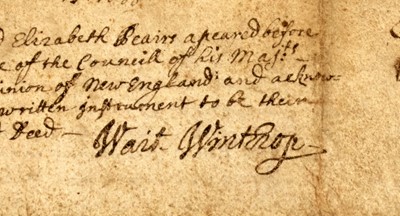 d Elizabeth Beairs apeared before
e of the Councill of his Majts
inion of New England: and acknow
written Instrument to be their
t Deed —
Wait Winthrop